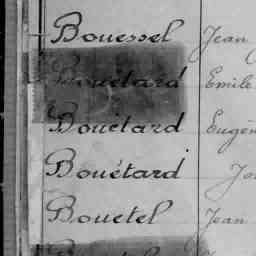 Bouessel Jean
Bouétard Emile
Bouétard Eugèn
Bouétard Jo
Bouetel Jean